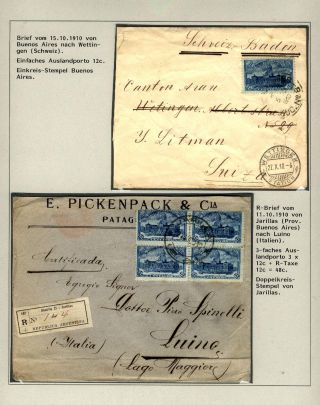 Brief vom 15.10.1910 von
Buenos Aires nach Wettin-
gen (Schweiz).
Einfaches Auslandporto 12c.
Einkreis-Stempel Buenos
Aires.
Schweiz-Baden
Canton
Wettingen Albertstrasse
No 29
Y. Litman
Suiza
WETTINGEN
E. PICKENPACK & CIA
PATAG
Certificada
Egregio Signor
Dottor Piero Spinelli
Luino
(Italia)
(Lago Maggiore)
R No
REPUBLICA ARGENTINA
R-Brief vom
11.10.1910 von
Jarillas (Prov.
Buenos Aires)
nach Luino
(Italien).
3-faches Aus-
landporto 3 x
12c + R-Taxe
12c = 48c.
Doppelkreis-
Stempel von
Jarillas.